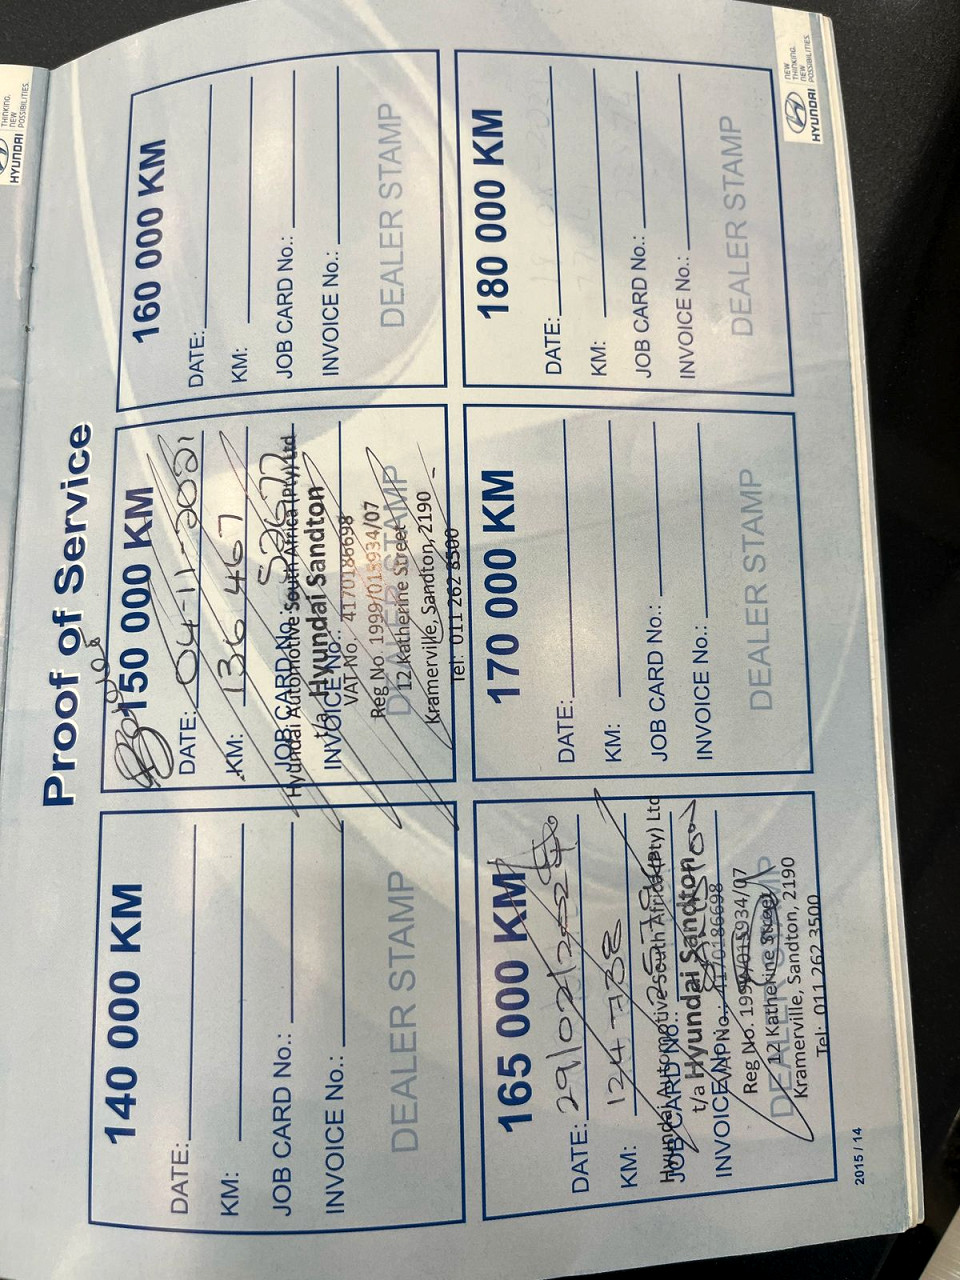 Proof of Service
140 000 KM
DATE:
KM:
JOB CARD No.:
INVOICE No.:
DEALER STAMP
150 000 KM
DATE: 04-11-2021
KM: 136 467
JOB CARD No.:
Hyundai Automotive South Africa (Pty) Ltd
t/a Hyundai Sandton
INVOICE No.:
VAT No. 4170186698
Reg No. 1999/015934/07
12 Katherine Street
DEALER STAMP
Kramerville, Sandton, 2190
Tel: 011 262 3500
160 000 KM
DATE:
KM:
JOB CARD No.:
INVOICE No.:
DEALER STAMP
165 000 KM
DATE: 29/02/2024
KM: 124 738
JOB CARD No.:
Hyundai Automotive South Africa (Pty) Ltd
t/a Hyundai Sandton
INVOICE No.:
VAT No.: 4170186698
Reg No. 1999/015934/07
12 Katherine Street
DEALER STAMP
Kramerville, Sandton, 2190
Tel: 011 262 3500
170 000 KM
DATE:
KM:
JOB CARD No.:
INVOICE No.:
DEALER STAMP
180 000 KM
DATE:
KM:
JOB CARD No.:
INVOICE No.:
DEALER STAMP
2015 / 14
HYUNDAI
NEW
THINKING.
NEW
POSSIBILITIES.
HYUNDAI
THINKING.
NEW
POSSIBILITIES.